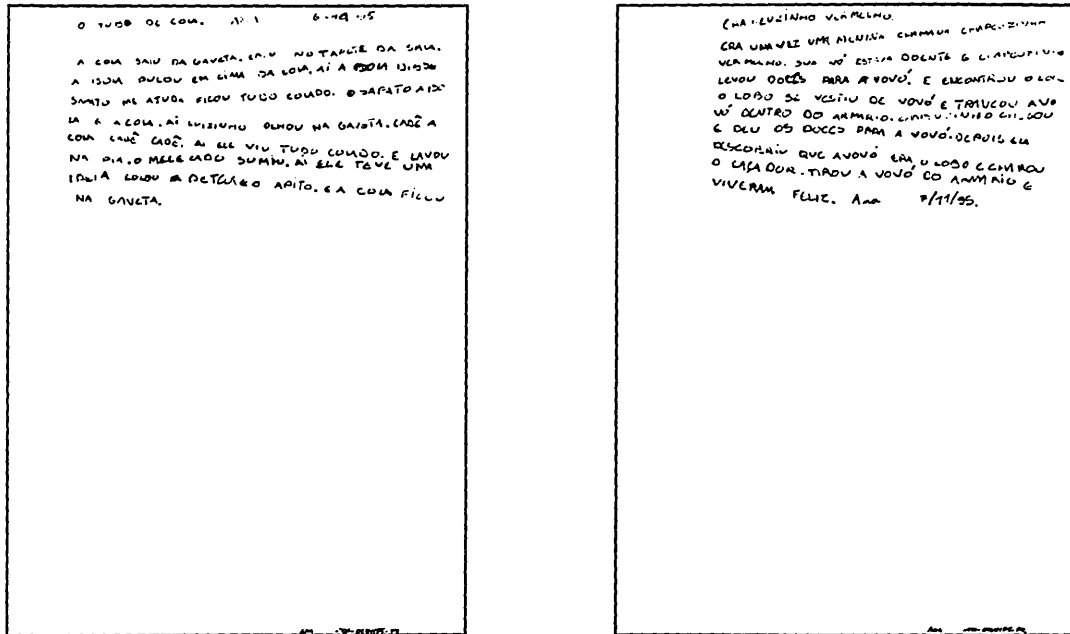 O TUBO DE COLA.
A COLA SAIU DA GAVETA. CAIU NO TAPETE DA SALA.
A BOLA PULOU EM CIMA DA COLA. AÍ A BOLA DISSE
SAPATO ME AJUDA FICOU TUDO COLADO. O SAPATO A BO
LA E A COLA. AÍ LUIZINHO OLHOU NA GAVETA. CADÊ A
COLA CADÊ CADÊ. AI ELE VIU TUDO COLADO. E LAVOU
NA PIA. O MELECADO SUMIU. AI ELE TEVE UMA
IDEIA COLOU O APITO. E A COLA FICOU
NA GAVETA.
CHAPEUZINHO VERMELHO.
ERA UMA VEZ UMA MENINA CHAMADA CHAPEUZINHO
VERMELHO. SUA VÓ ESTAVA DOENTE E CHAPEUZINHO
LEVOU DOCES PARA A VOVÓ. E ENCONTROU O LOBO
O LOBO SE VESTIU DE VOVÓ E TRANCOU A VO
VÓ DENTRO DO ARMARIO. CHAPEUZINHO CHEGOU
E DEU OS DOCES PARA A VOVÓ. DEPOIS ELA
DESCOBRIU QUE A VOVÓ ERA O LOBO E CHAMOU
O CAÇADOR. TIROU A VOVÓ DO ARMARIO E
VIVERAM FELIZ. Ana 7/11/95.